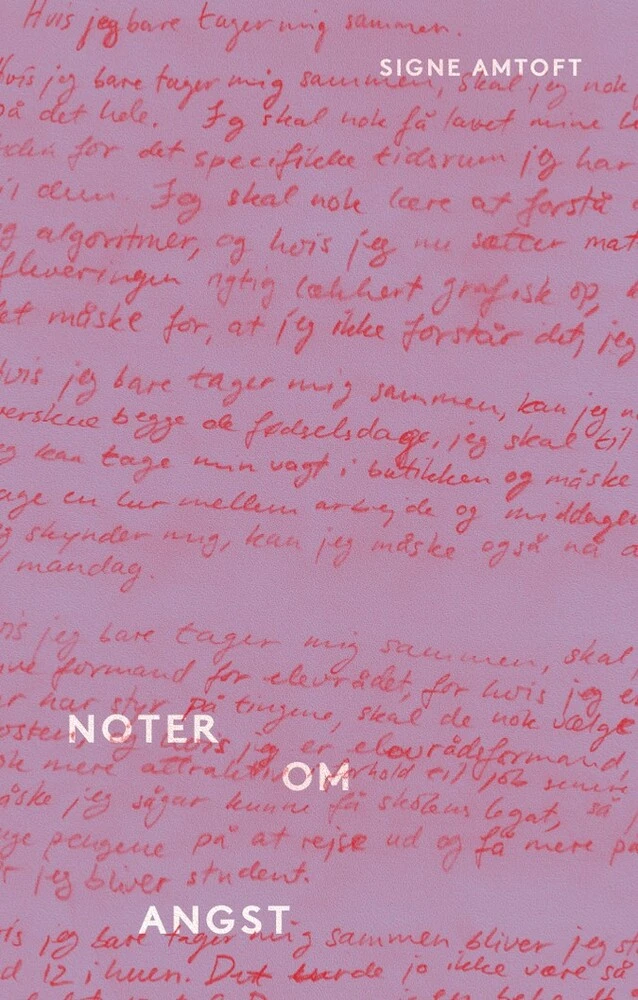 Hvis jeg bare tager mig sammen.
SIGNE AMTOFT
Hvis jeg bare tager mig sammen, skal jeg nok
på det hele. Jeg skal nok få lavet mine
for det specifikke tidsrum jeg har
til dem. Jeg skal nok lære at forstå
og algoritmer, og hvis jeg nu sætter mat
fleveringen rigtig lækkert grafisk op,
det måske for, at jeg ikke forstår det, jeg
Hvis jeg bare tager mig sammen, kan jeg
verskue begge de fødselsdage, jeg skal til
eg kan tage min vagt i butikken og måske
age en lur mellem arbejde og middagen
eg skynder mig, kan jeg måske også nå
mandag.
vis jeg bare tager mig sammen, skal
ive formand for elevrådet, for hvis jeg
er har styr på tingene, skal de nok vælge
NOTER
og hvis jeg er elevrådsformand,
OM
ok mere attraktiv i forhold til job senere
åske jeg sågar kunne få skolens legat, så
uge pengene på at rejse ud og få mere
r jeg bliver student.
ANGST
vis jeg bare tager mig sammen bliver jeg
d 12 i huen. Det burde jo ikke være så